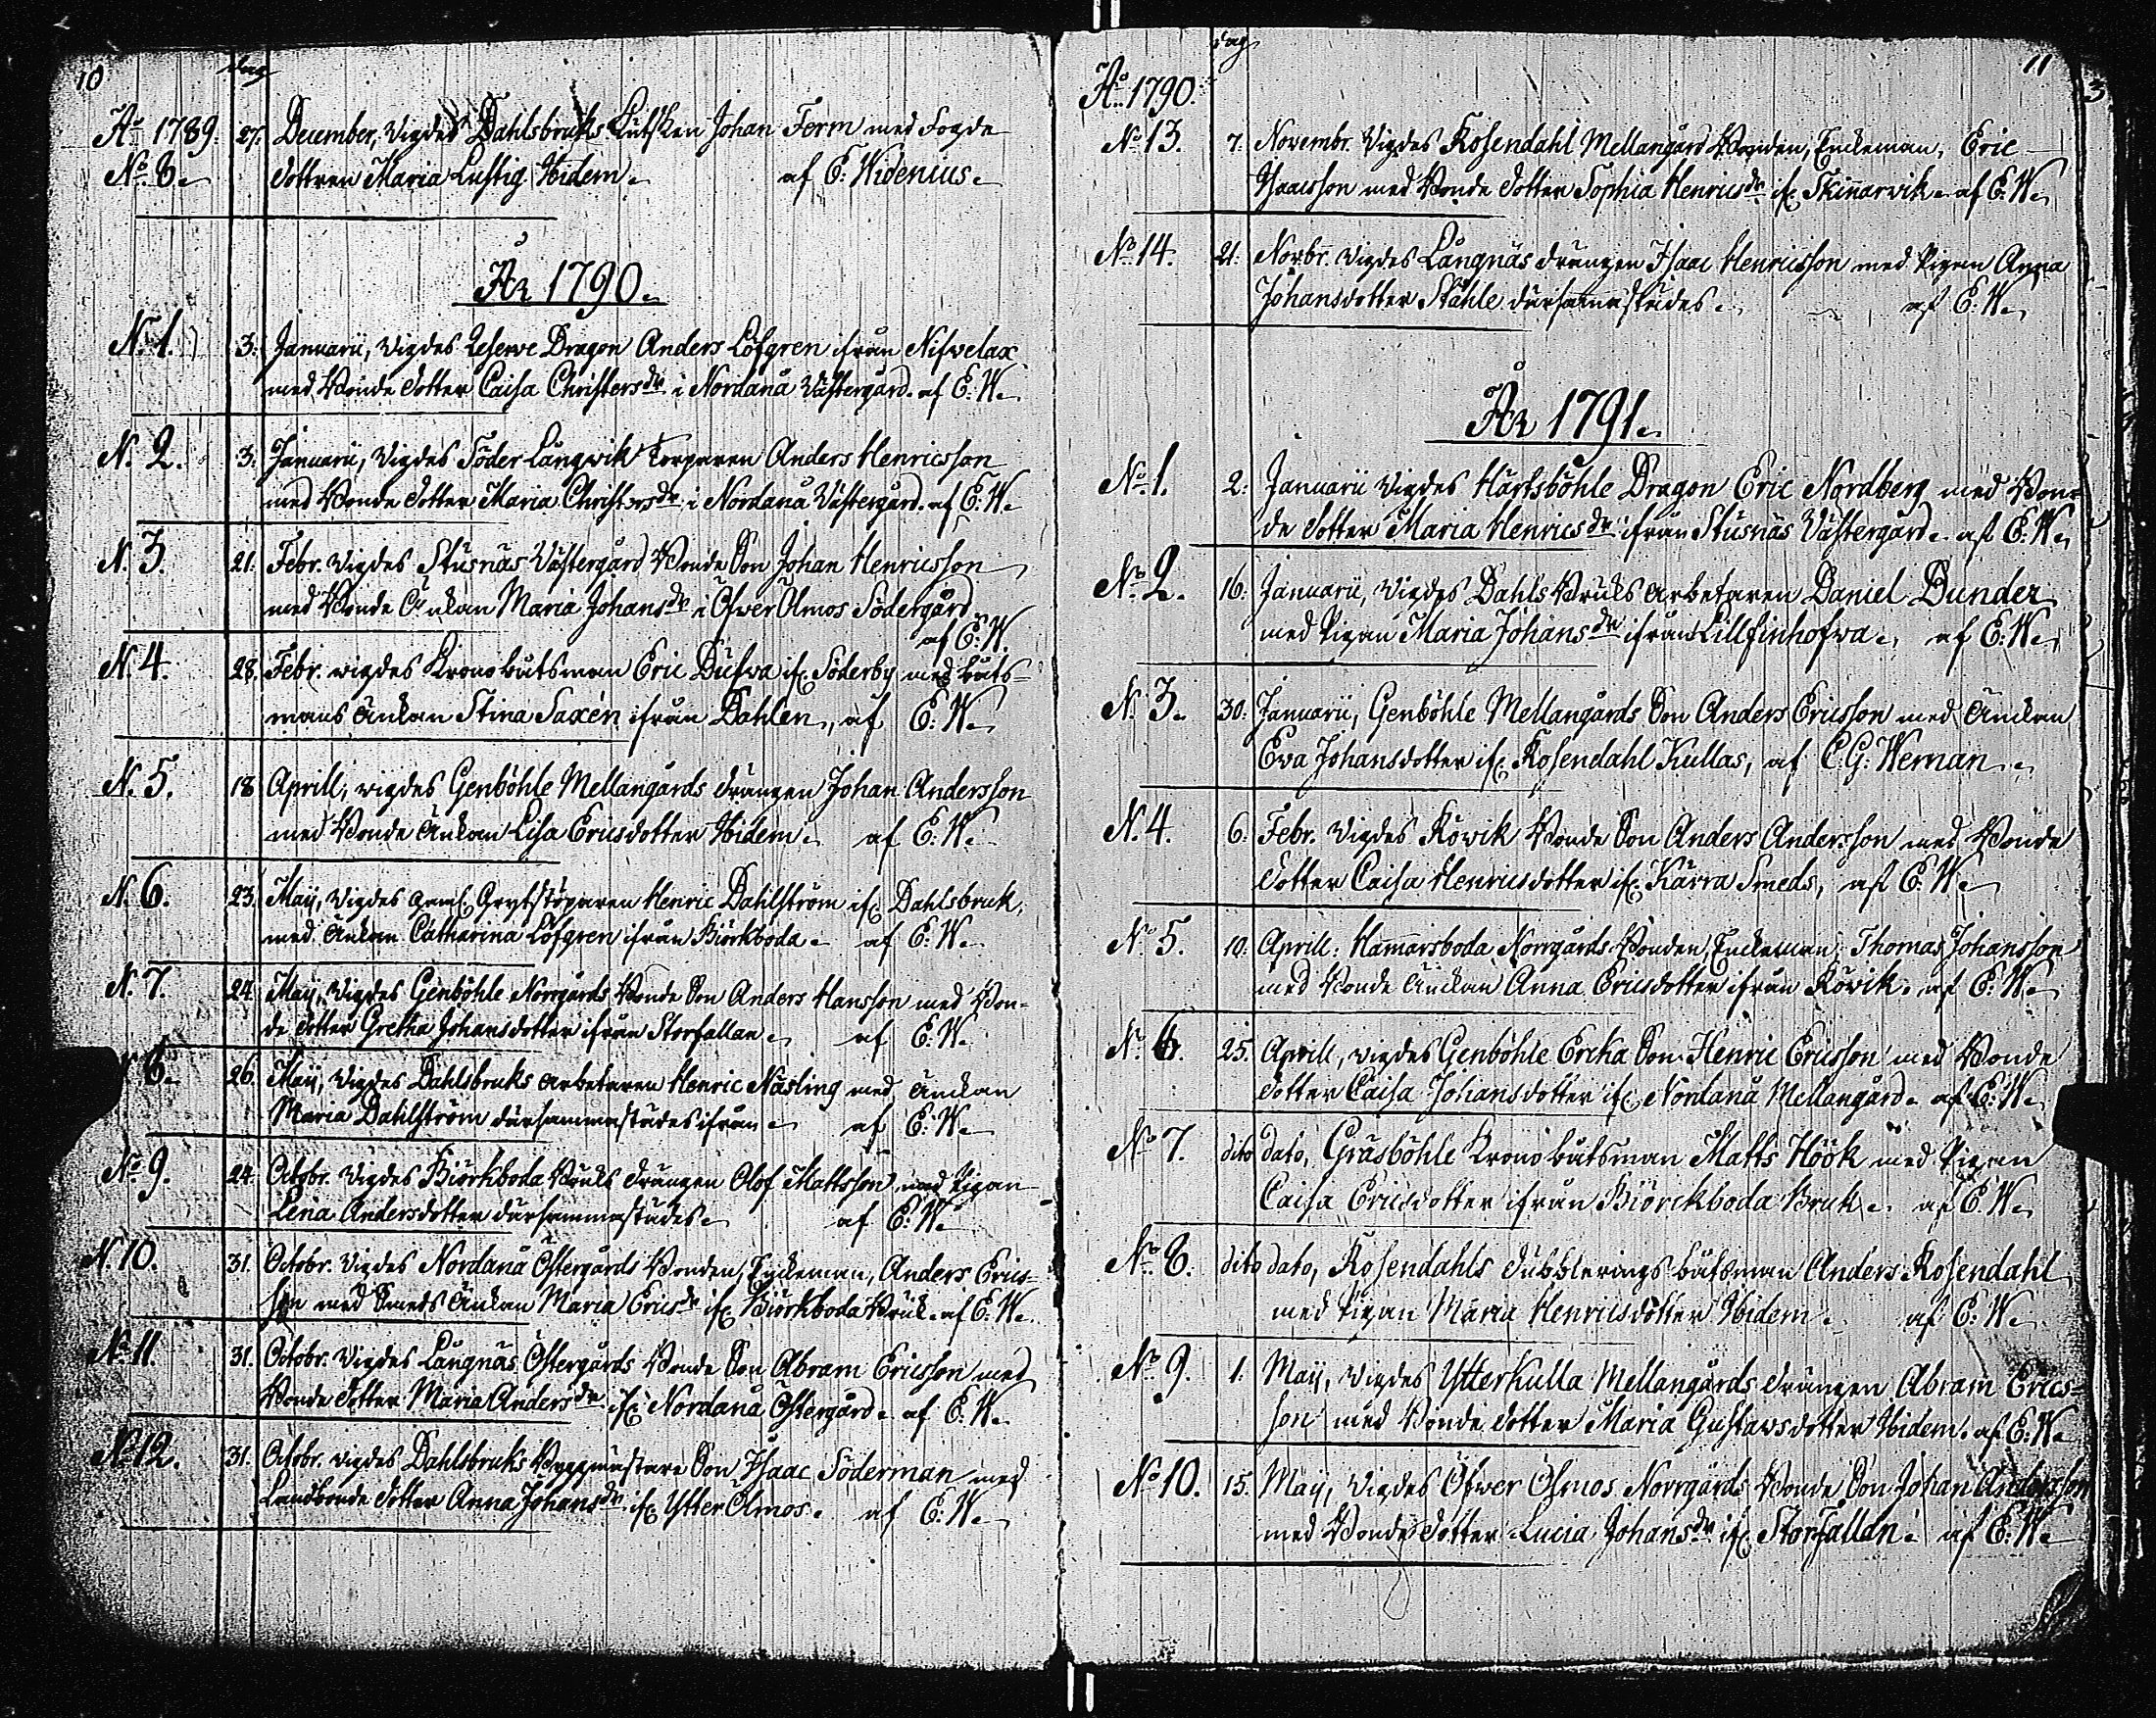 10 dag
Aō 1789. 27. December, Vigdes Dahlsbruks Kusken Johan Ferm med Fogde
No. 8. dottren Maria Lustig Ibidem. af E: Widenius.
År 1790.
N. 1. 3. Januarii, Vigdes Reserve Dragon Anders Löfgren ifrån Nifvelax
med Bonde dotter Caisa Christersdr i Nordanå Västergård. af E: W.
N. 2. 3. Januarii, Vigdes Söder Långwik Torparen Anders Henricsson
med Bonde dotter Maria Christersdr i Nordanå Västergård. af E: W.
N. 3. 21. Febr. Vigdes Stusnäs Västergård Bonde Son Johan Henricsson
med Bonde Änkan Maria Johansdr i Öfwer Ölmos Södergård
af E: W.
N. 4. 28. Febr. vigdes Krono båtsman Eric Dufwa if. Söderby med båts-
mans Änkan Stina Saxén ifrån Dahlen, af E: W.
N. 5. 18 Aprill, vigdes Genböhle Mellangårds drängen Johan Andersson
med Bonde Änkan Lisa Ericsdotter Ibidem. af E: W.
N. 6. 23. Maij, Vigdes Grytstöparen Henric Dahlström if. Dahlsbruk,
med Änkan Catharina Löfgren ifrån Biörkboda. af E: W.
N. 7. 24. Maij, Vigdes Genböhle Norrgårds Bonde Son Anders Hansson med Bon-
de dotter Gretha Johansdotter ifrån Storfallan. af E: W.
8. 26. Maij, Vigdes Dahlsbruks arbetaren Henric Näsling med Änkan
Maria Dahlström därsammastädes ifrån. af E: W.
No. 9. 24. Octobr. Vigdes Biörkboda Bruks drängen Olof Mattsson med Pigan
Lena Andersdotter därsammastädes. af E: W.
N. 10. 31. Octobr. Vigdes Nordanå Östergårds Bonden, Enckeman, Anders Erics-
son med Smeds Änkan Maria Ericsdr if. Biörkboda Bruk. af E: W.
No. 11. 31. Octobr. Vigdes Långnäs Östergårds Bonde Son Abram Ericsson med
Bonde dotter Maria Andersdr if. Nordanå Östergård. af E. W.
No. 12. 31. Octobr. vigdes Dahlsbruks Byggmästare Son Isaac Söderman med
Landbonde dotter Anna Johansdr if. Ytter Ölmos. af E: W.
dag 11
Aō 1790. 3
No. 13. 7. Novembr. Vigdes Rosendahl Mellangård Bonden, Enckeman, Eric
Isaacsson med Bonde dotter Sophia Henricsdr if. Skinnarvik. af E: W.
No. 14. 21. Novbr. vigdes Långnäs drängen Isaac Henricsson med Pigan Anna
Johansdotter Ståhle därsammastädes. af E: W.
År 1791.
No. 1. 2. Januarii Vigdes Härtsböhle Dragon Eric Nordberg med Bon-
de dotter Maria Henricsdr ifrån Stusnäs Västergård. af E: W.
No. 2. 16. Januarii, Vigdes Dahls Bruks arbetaren Daniel Dunder
med Pigan Maria Johansdr ifrån Lillfinhofwa. af E: W.
N. 3. 30. Januarii, Genböhle Mellangårds Son Anders Ericsson med Änkan
Eva Johansdotter if. Rosendahl Kullas, af C. G: Weman.
N. 4. 6. Febr. Vigdes Rövik Bonde Son Anders Andersson med Bonde
dotter Caisa Henricsdotter if. Kärra Smeds, af E: W.
No. 5. 10. Aprill: Hammarsboda Norrgårds Bonden, Enckeman, Thomas Johansson
med Bonde Änckan Anna Ericsdotter ifrån Rövik. af E: W.
No. 6. 25. Aprill, vigdes Genböhle Ericka Son Henric Ericsson med Bonde
dotter Caisa Johansdotter if. Nordanå Mellangård. af E: W.
No. 7. dito dato, Gräsböhle Krono båtsman Matts Höök med Pigan
Caisa Ericsdotter ifrån Biörckboda Bruk. af E: W.
No. 8. dito dato, Rosendahls dubblerings båtsman Anders Rosendahl
med Pigan Maria Henricsdotter Ibidem. af E: W.
No. 9. 1. Maij, Vigdes Ytterkulla Mellangårds drängen Abram Erics-
son med Bonde dotter Maria Gustavsdotter Ibidem. af E: W.
No. 10. 15. Maij, Vigdes Öfwer Ölmos Norrgårds Bonde Son Johan Andersson
med Bonde dotter Lucia Johansdr if. Storfallan. af E: W.